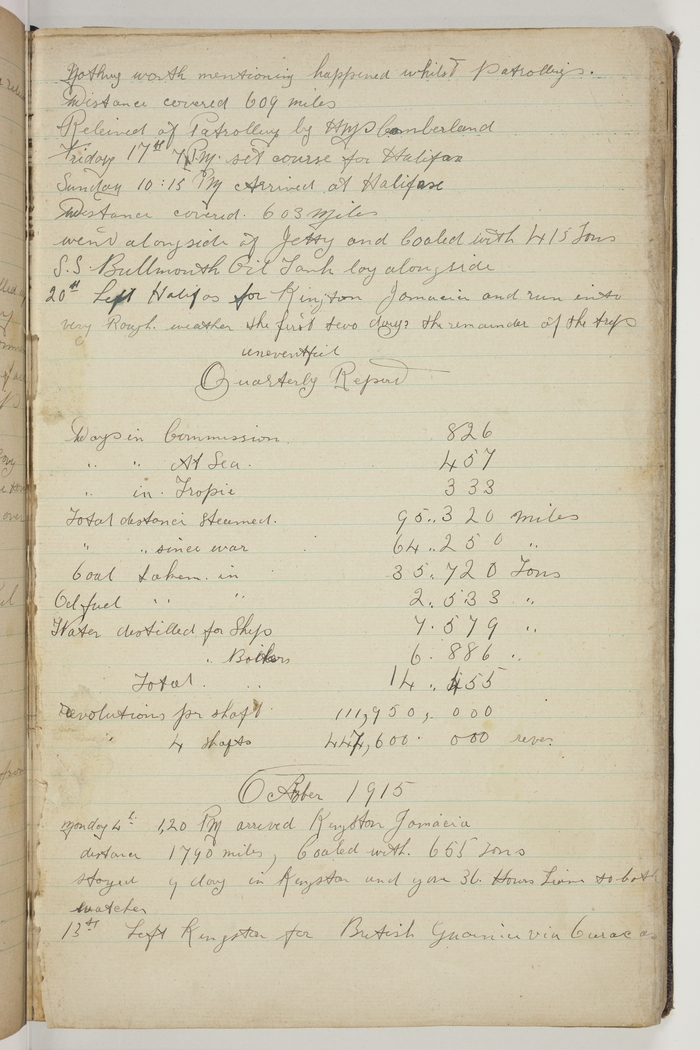 Nothing worth mentioning happened whilst Patrolling.
Distance covered 609 miles
Releived of Patrolling by HMS Cumberland
Friday 17th 7 PM. set course for Halifax
Sunday 10:15 PM Arrived at Halifax
Distance covered. 603 Miles
went alongside of Jetty and Coaled with 415 Tons
S.S Bullmouth Oil Tank lay alongside
20th Left Halifax for Kingston Jamacia and run into
very Rough. weather the first two days the remainder of the trip
uneventful
Quarterly Report
Days in Commission. 826
" " At Sea. 457
" in. Tropic 333
Total distance Steamed. 95..320 miles
" " since war 64..250 "
Coal taken. in 35.720 Tons
Oil fuel " " 2.533 "
Water destilled for Ships 7.579 "
" Boilers 6.886 "
Total. " 14.,455
Revolutions per shaft 111,950,000
" 4 shafts 447,600.000 revs.
October 1915
Monday 4th 1,20 PM arrived Kingston Jamacia
distance 1790 miles, Coaled with. 655 Tons
stayed 9 days in Kingston and gave 36. Hours Leave to both
watches
13th Left Kingston for British Guania via Curacas